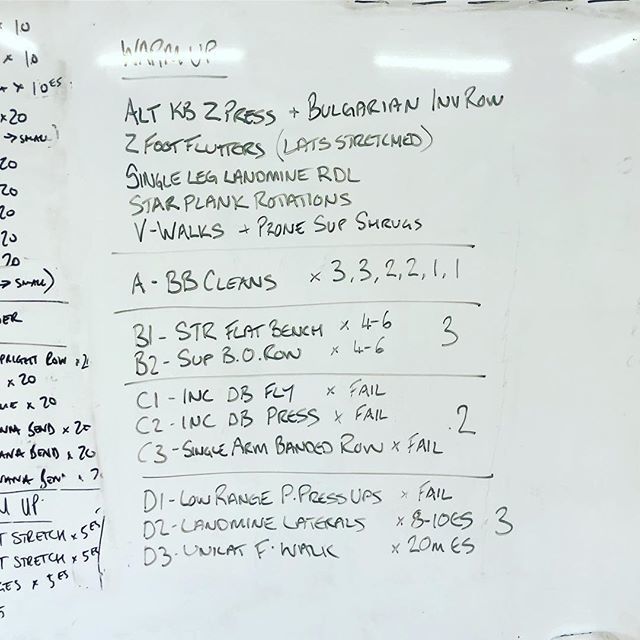 × 10
× 10
× 10 ES
× 20
→ SMALL)
20
20
20
20
20
→ SMALL)
UPRIGHT ROW × 2
× 20
× 20
BEND × 20
BEND × 20
UP
STRETCH × 5 ES
STRETCH × 5 ES
× 5 ES
WARM UP
ALT KB Z PRESS + BULGARIAN INV ROW
Z FOOT FLUTTERS (LATS STRETCHED)
SINGLE LEG LANDMINE RDL
STAR PLANK ROTATIONS
V-WALKS + PRONE SUP SHRUGS
A - BB CLEANS × 3, 3, 2, 2, 1, 1
B1 - STR FLAT BENCH × 4-6
B2 - SUP B.O. ROW × 4-6
3
C1 - INC DB FLY × FAIL
C2 - INC DB PRESS × FAIL
C3 - SINGLE ARM BANDED ROW × FAIL
2
D1 - LOW RANGE P. PRESS UPS × FAIL
D2 - LANDMINE LATERALS × 8-10 ES
D3 - UNILAT F. WALK × 20M ES
3